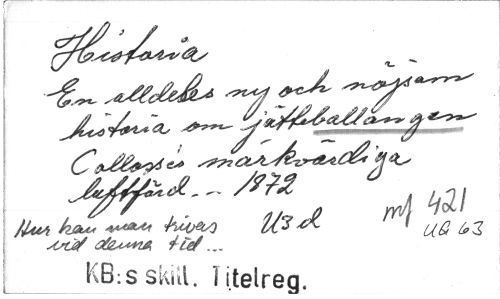 Historia
En alldeles ny och nöjsam
historia om jätteballongen
Collosses märkvärdiga
luftfärd... 1872
Hur kan man trivas
vid denna tid...
U3 d
mf 421
UB 63
KB:s skill. Titelreg.